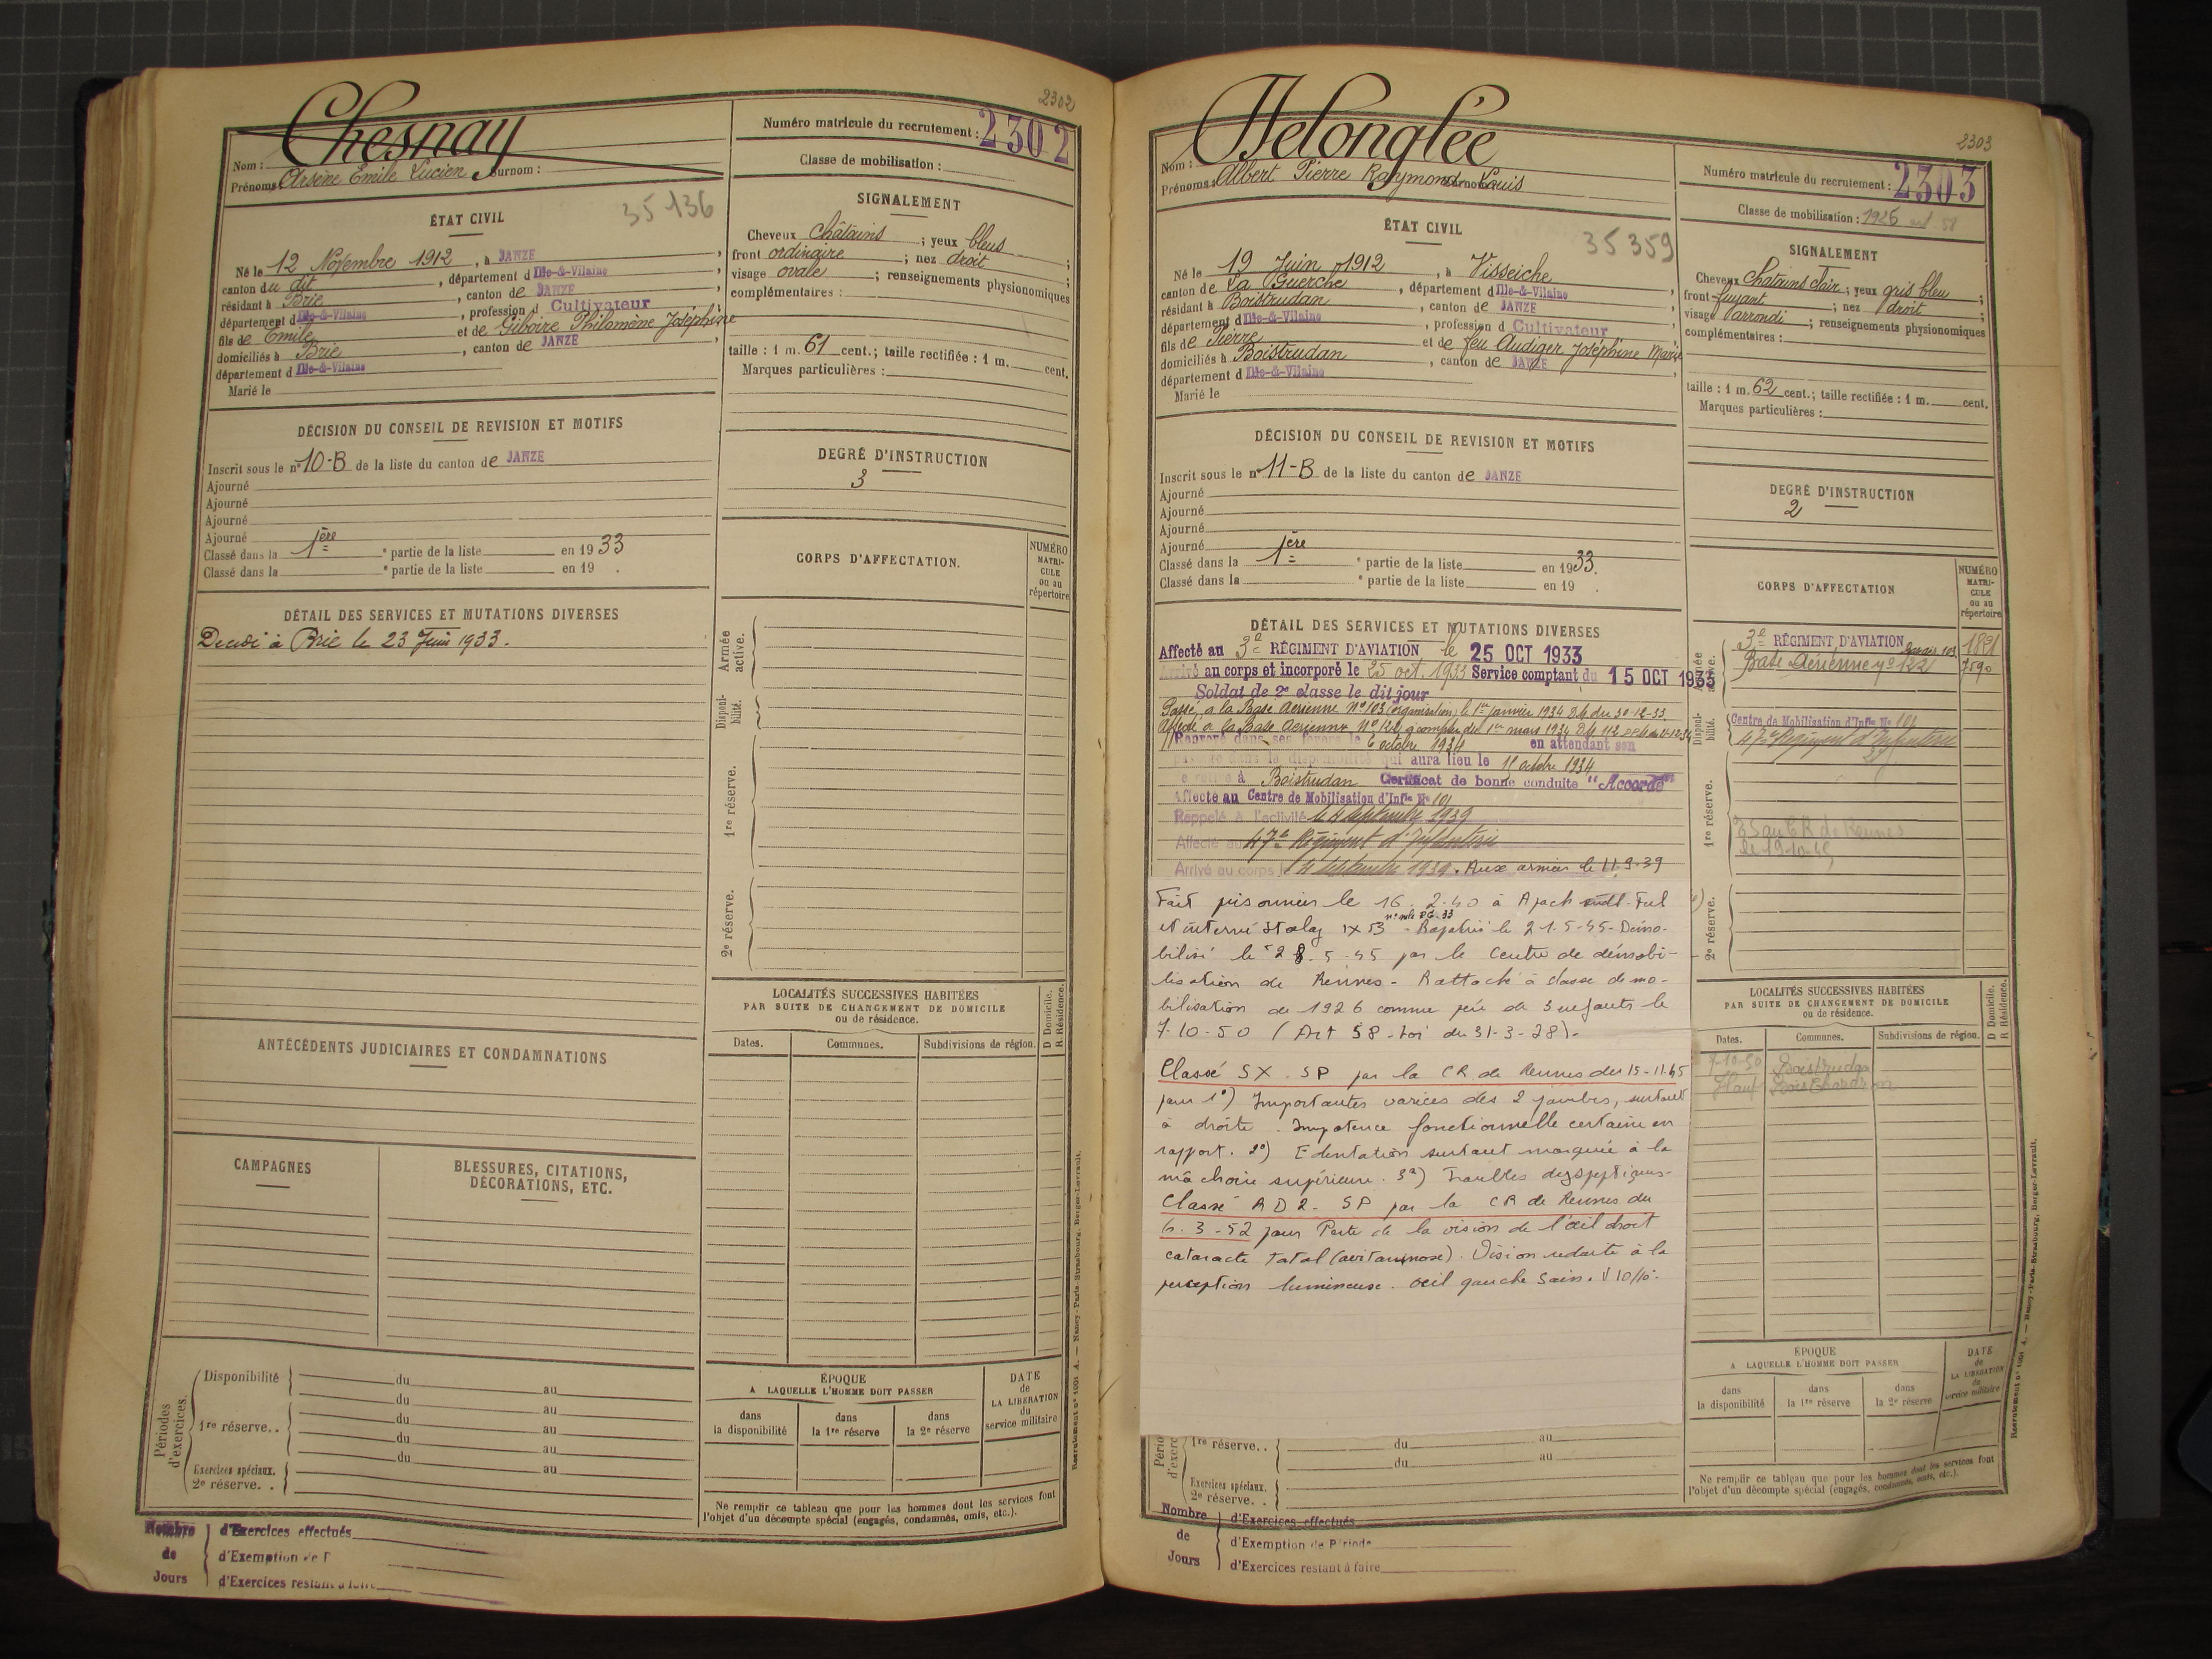 2302
Chesnay
Nom :
Prénoms : Arsène Emile Lucien Surnom :
Numéro matricule du recrutement : 2302
Classe de mobilisation :
ÉTAT CIVIL
35136
Né le 12 Novembre 1912, à JANZE,
canton du dit, département d Ille-&-Vilaine,
résidant à Brie, canton de JANZE,
département d Ille-&-Vilaine, profession d Cultivateur
fils de Emile et de Giboire Philomène Joséphine
domiciliés à Brie, canton de JANZE,
département d Ille-&-Vilaine
Marié le
SIGNALEMENT
Cheveux châtains ; yeux bleus ;
front ordinaire ; nez droit ;
visage ovale ; renseignements physionomiques
complémentaires :
taille : 1 m. 61 cent.; taille rectifiée : 1 m. cent.
Marques particulières :
DÉCISION DU CONSEIL DE REVISION ET MOTIFS
Inscrit sous le n° 10-B de la liste du canton de JANZE
Ajourné
Ajourné
Ajourné
Ajourné
Classé dans la 1ère e partie de la liste en 1933
Classé dans la e partie de la liste en 19 .
DEGRÉ D'INSTRUCTION
3
CORPS D'AFFECTATION.
NUMÉRO
MATRI-
CULE
ou au
répertoire
DÉTAIL DES SERVICES ET MUTATIONS DIVERSES
Décédé à Brie le 23 Juin 1933.
Armée
active.
Disponi-
bilité.
1re réserve.
2e réserve.
LOCALITÉS SUCCESSIVES HABITÉES
PAR SUITE DE CHANGEMENT DE DOMICILE
ou de résidence.
D Domicile.
R Résidence.
Dates.
Communes.
Subdivisions de région.
ANTÉCÉDENTS JUDICIAIRES ET CONDAMNATIONS
CAMPAGNES
BLESSURES, CITATIONS,
DÉCORATIONS, ETC.
Périodes
d'exercices.
Disponibilité du au
du au
1re réserve.. du au
du au
Exercices spéciaux. du au
2e réserve. .
ÉPOQUE
A LAQUELLE L'HOMME DOIT PASSER
dans
la disponibilité
dans
la 1re réserve
dans
la 2e réserve
DATE
de
LA LIBÉRATION
du
service militaire
Ne remplir ce tableau que pour les hommes dont les services font
l'objet d'un décompte spécial (engagés, condamnés, omis, etc.).
Recrutement n° 1001 A. — Nancy-Paris-Strasbourg, Berger-Levrault.
Nombre
de
Jours
d'Exercices effectués
d'Exemption de P
d'Exercices restant à faire
2303
Helonglée
Nom :
Prénoms : Albert Pierre Raymond Louis
Numéro matricule du recrutement : 2303
Classe de mobilisation : 1926 art 58
ÉTAT CIVIL
35359
Né le 19 Juin 1912, à Visseiche,
canton de La Guerche, département d Ille-&-Vilaine,
résidant à Boistrudan, canton de JANZE,
département d Ille-&-Vilaine, profession d Cultivateur
fils de Pierre et de feu Audiger Joséphine Marie
domiciliés à Boistrudan, canton de JANZE,
département d Ille-&-Vilaine
Marié le
SIGNALEMENT
Cheveux Chatains clair ; yeux gris bleu ;
front fuyant ; nez droit ;
visage arrondi ; renseignements physionomiques
complémentaires :
taille : 1 m. 62 cent.; taille rectifiée : 1 m. cent.
Marques particulières :
DÉCISION DU CONSEIL DE REVISION ET MOTIFS
Inscrit sous le n° 11-B de la liste du canton de JANZE
Ajourné
Ajourné
Ajourné
Ajourné
Classé dans la 1ère e partie de la liste en 1933.
Classé dans la e partie de la liste en 19 .
DEGRÉ D'INSTRUCTION
2
CORPS D'AFFECTATION
NUMÉRO
MATRI-
CULE
ou au
répertoire
DÉTAIL DES SERVICES ET MUTATIONS DIVERSES
Affecté au 3e RÉGIMENT D'AVIATION le 25 OCT 1933
Arrivé au corps et incorporé le 25 oct. 1933 Service comptant du 15 OCT 1933
Soldat de 2e classe le dit jour
Passé à la Base Aérienne N° 103 (organisation) le 1er janvier 1934 du 30-12-33
Affecté à la Base Aérienne N° 122 à compter du 1er mars 1934
Renvoyé dans ses foyers le 6 octobre 1934 en attendant son
passage dans la disponibilité qui aura lieu le 15 octobre 1934
Se retire à Boistrudan Certificat de bonne conduite "Accordé"
Affecté au Centre de Mobilisation d'Infie N° 101
Rappelé à l'activité le 4 septembre 1939
Affecté au 47e Régiment d'Infanterie
Arrivé au corps le 4 septembre 1939. Aux armées le 11.9.39
Fait prisonnier le 16.2.40 à Apach
et interné Stalag IX B - Rapatrié le 21-5-45 - Démo-
bilisé le 28-5-45 par le Centre de démobi-
lisation de Rennes - Rattaché à classe de mo-
bilisation de 1926 comme père de 3 enfants le
7-10-50 (Art 58 - Loi du 31-3-28).
Classé SX. SP par la CR de Rennes du 15-11-45
pour 1°) Importantes varices des 2 jambes, surtout
à droite. Impotence fonctionnelle certaine en
rapport. 2°) Edentation surtout marquée à la
mâchoire supérieure. 3°) Troubles dyspeptiques-
Classé RD2. SP par la CR de Rennes du
6.3-52 pour Perte de la vision de l'œil droit
cataracte total (avitaminose). Vision réduite à la
perception lumineuse. Oeil gauche sain. V 10/10.
Armée
active.
3e RÉGIMENT D'AVIATION 1821
Base Aérienne n° 122 7590
Disponi-
bilité.
Centre de Mobilisation d'Infie N° 101
47e Régiment d'Infanterie
1re réserve.
CR de Rennes
le 19-10-45
2e réserve.
LOCALITÉS SUCCESSIVES HABITÉES
PAR SUITE DE CHANGEMENT DE DOMICILE
ou de résidence.
D Domicile.
R Résidence.
Dates.
Communes.
Subdivisions de région.
7-10-50 Boistrudan
ÉPOQUE
A LAQUELLE L'HOMME DOIT PASSER
dans
la disponibilité
dans
la 1re réserve
dans
la 2e réserve
DATE
de
LA LIBÉRATION
du
service militaire
1re réserve.. du au
du au
Exercices spéciaux.
2e réserve. .
Ne remplir ce tableau que pour les hommes dont les services font
l'objet d'un décompte spécial (engagés, condamnés, omis, etc.).
Recrutement n° 1001 A. — Nancy-Paris-Strasbourg, Berger-Levrault.
Nombre
de
Jours
d'Exercices effectués
d'Exemption de Période
d'Exercices restant à faire